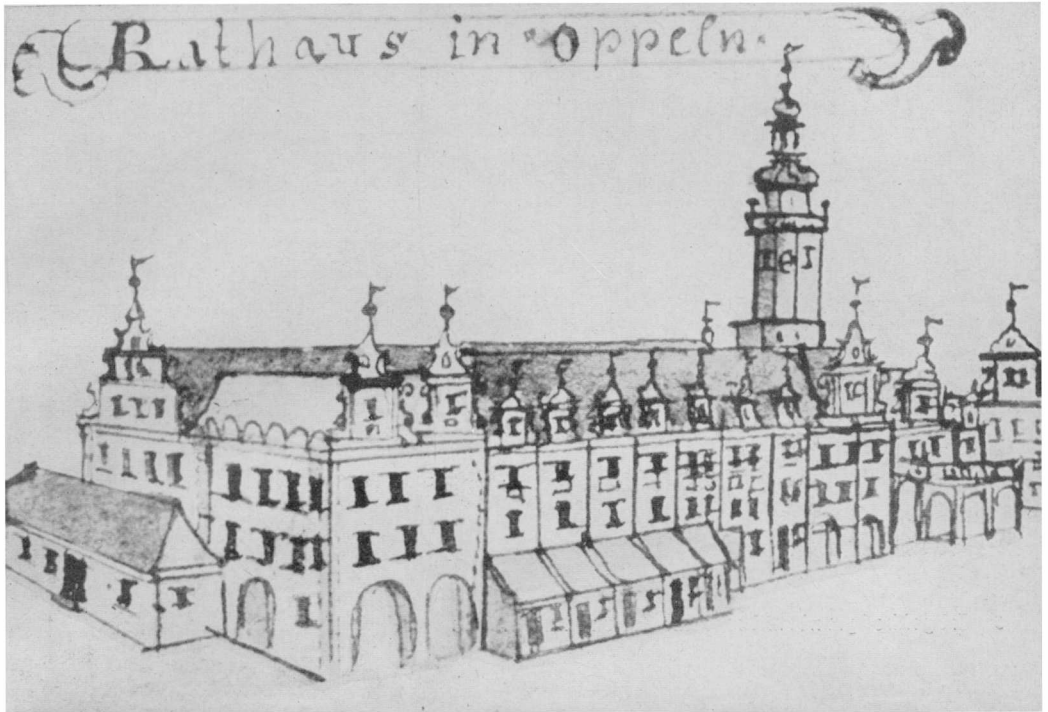 Rathaus in Oppeln.